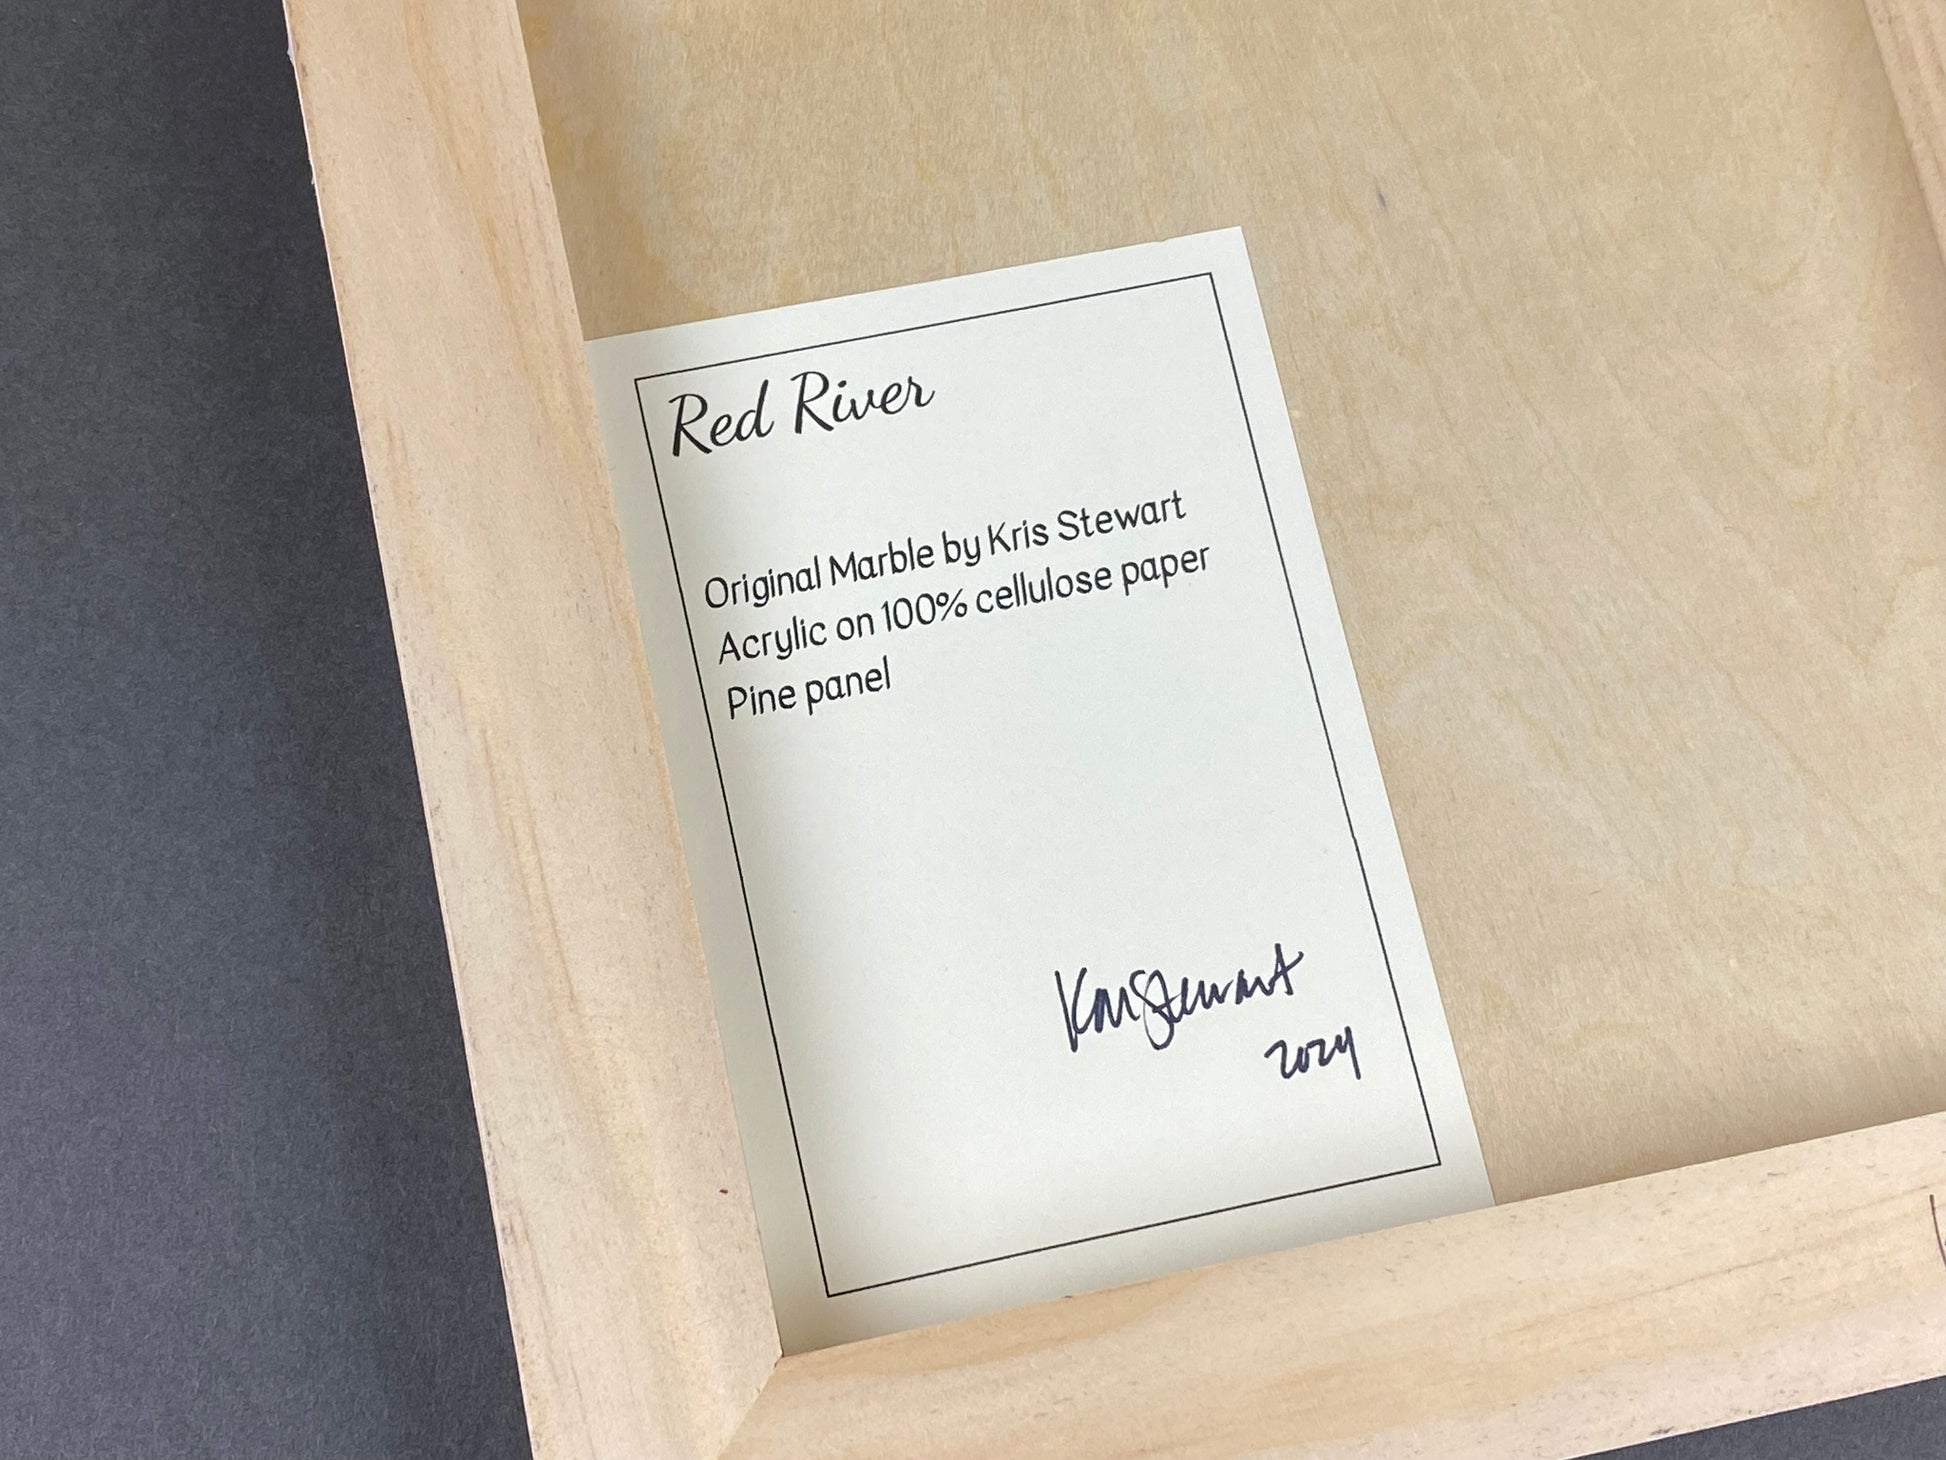 Red River
Original Marble by Kris Stewart
Acrylic on 100% cellulose paper
Pine panel
Kris Stewart
2024